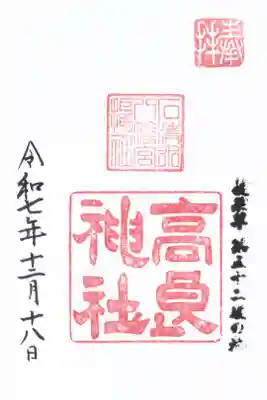 奉拝
石清水
八幡宮
摂社
徒然草 第五十二段の社
高良
神社
令和七年十二月十八日